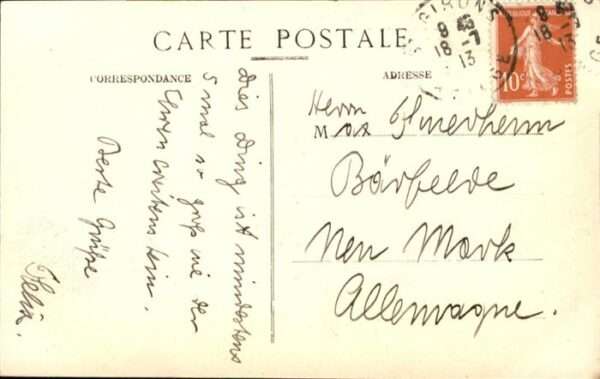 CARTE POSTALE
CORRESPONDANCE
ADRESSE
GIRONS
8 45
18 -7
13
REPUBLIQUE FRANÇAISE
10c
POSTES
Dies Ding ist mindestens
5 mal so groß wie der
Ihren
Beste Grüße
Felix.
Herrn
M Max
Bärfelde
Neu Mark
Allemagne.